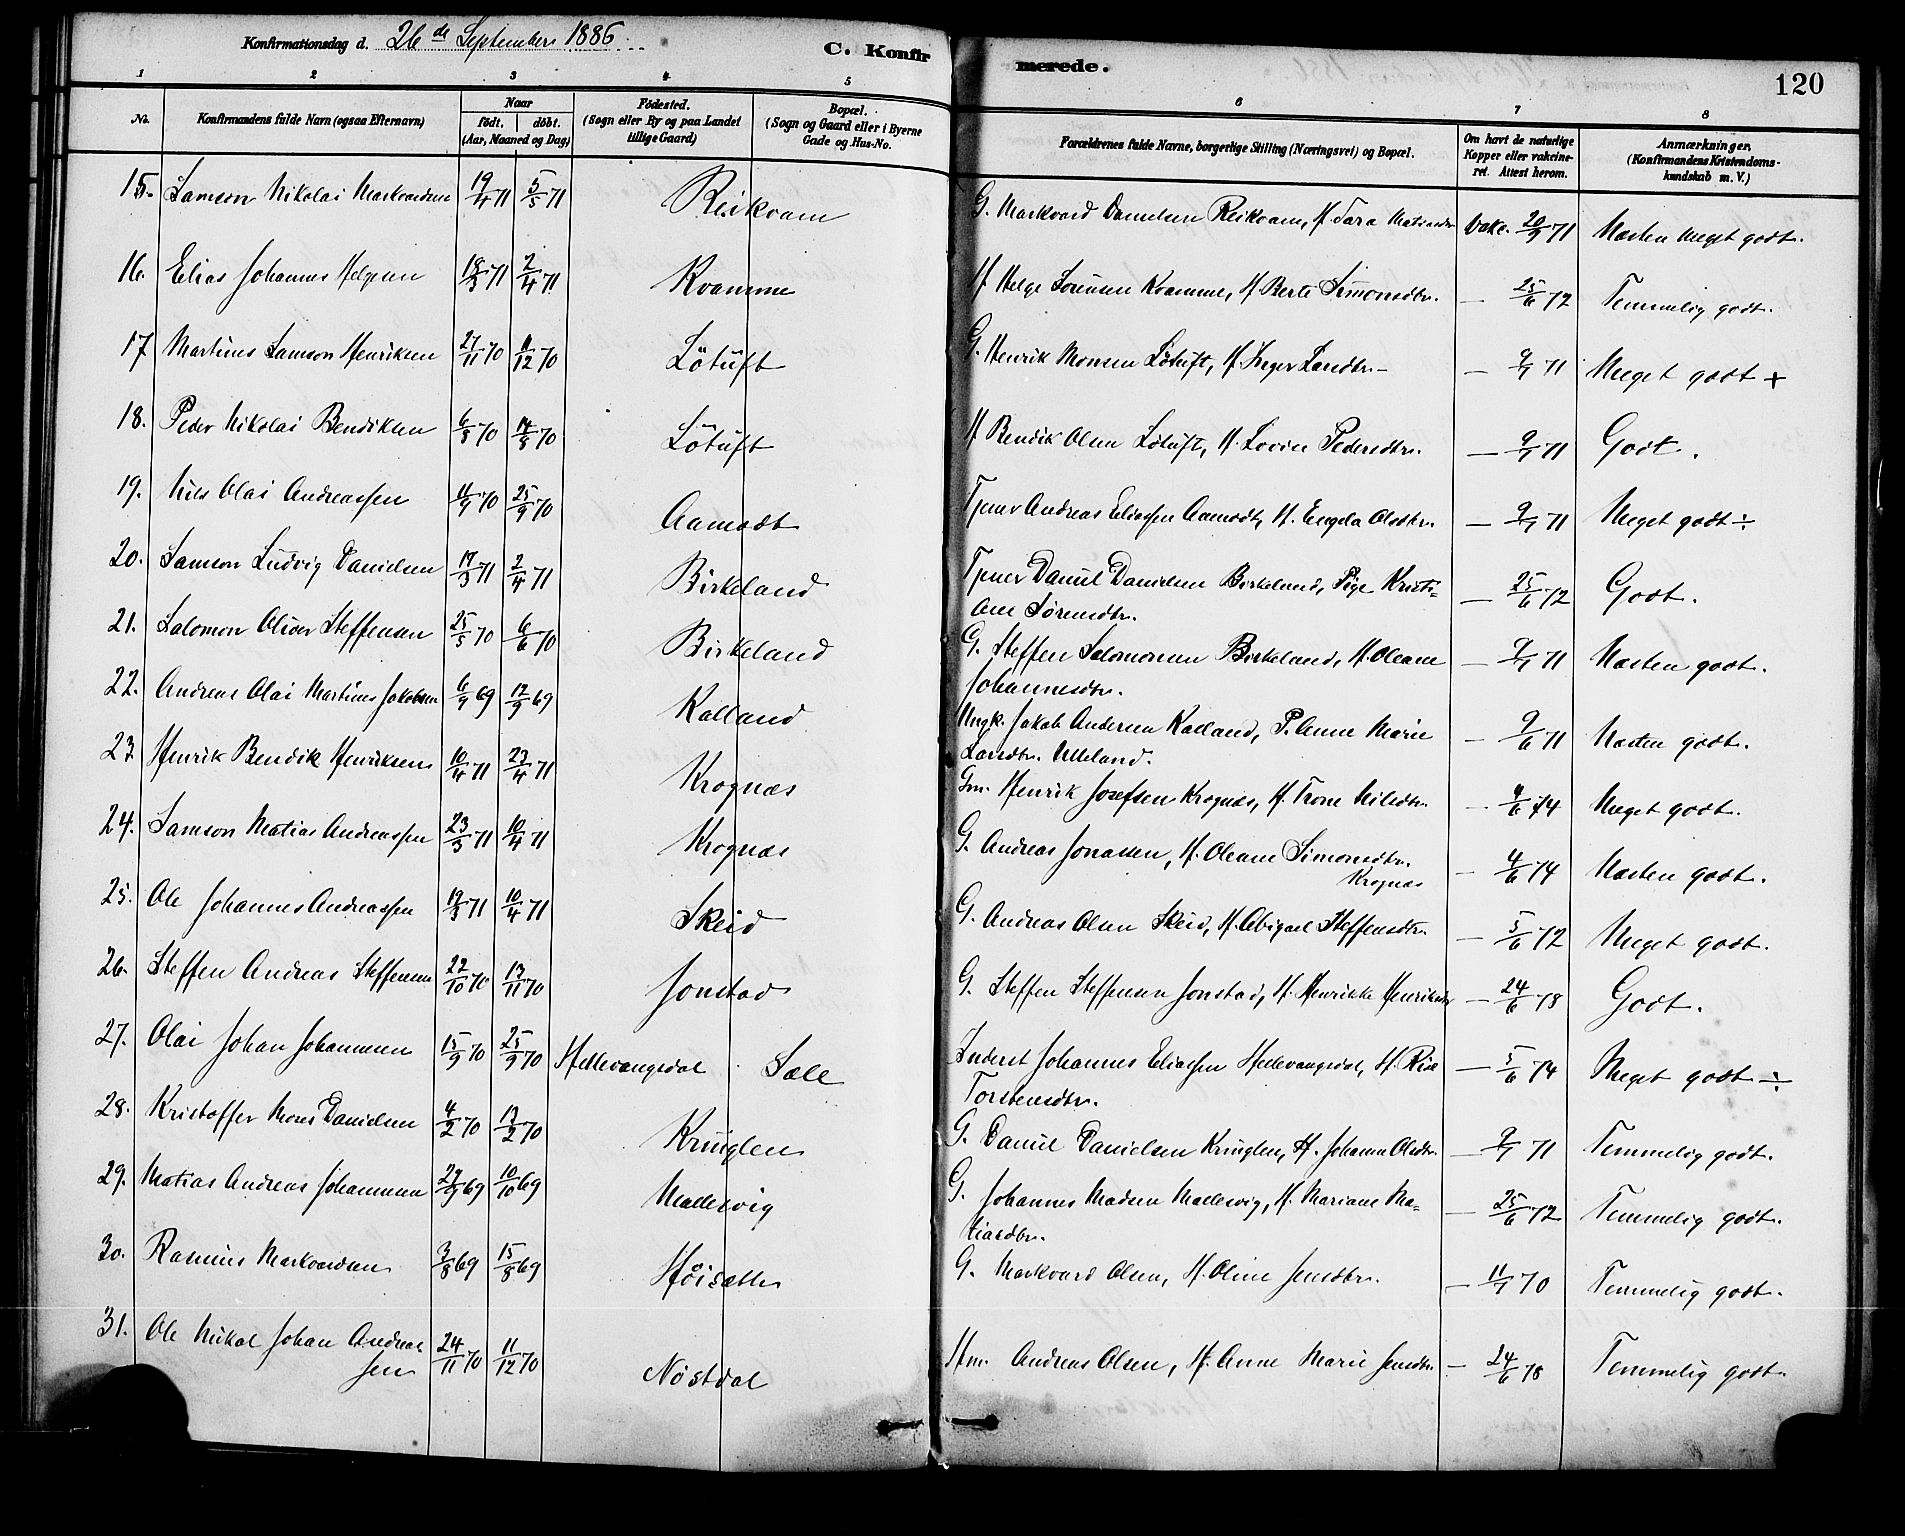 Konfirmationsdag d. 26de September 1886. C. Konfirmerede. 120
1 2 3 4 5 6 7 8
No. Konfirmandens fulde Navn (ogsaa Efternavn) Naar født. døbt. (Aar, Maaned og Dag) Fødested. (Sogn eller By og paa Landet tillige Gaard) Bopæl. (Sogn og Gaard eller i Byerne Gade og Hus-No. Forældrenes fulde Navne, borgerlige Stilling (Næringsvei) og Bopæl. Om havt de naturlige Kopper eller vakcineret. Attest herom. Anmærkninger. (Konfirmandens Kristendomskundskab m. V.)
15. Samson Nikolai Markvardsen 19/4 71 5/5 71 Reikvam G. Markvard Danielsen Reikvam, H. Sara Matiasdtr Vakc. 20/9 71 Næsten meget godt.
16. Elias Johannes Helgesen 18/3 71 2/4 71 Kvamme H Helge Sørensen Kvamme, H. Berte Simonsdtr. — 25/6 72 Temmelig godt.
17 Martines Samson Henriksen 27/11 70 11/12 70 Løtuft G. Henrik Monsen Løtuft, H. Inger Larsdtr. — 9/7 71 Meget godt +
18. Peder Nikolai Bendiksen 6/8 70 14/8 70 Løtuft H Bendik Olsen Løtuft, H. Lovise Pedersdtr. — 9/7 71 Godt.
19. Nils Olai Andreassen 11/9 70 25/9 70 Aamodt Tjener Andreas Eliassen Aamodt, H. Engela Olsdtr. — 9/7 71 Meget godt ÷
20. Samson Ludvig Danielsen 17/3 71 2/4 71 Birkeland Tjener Daniel Danielsen Birkeland, Pige Kristi-
ane Sørensdtr. — 25/6 72 Godt.
21. Salomon Oliver Steffensen 25/5 70 6/6 70 Birkeland G. Steffen Salomonsen Birkeland, H. Oleane
Johannesdtr. — 9/7 71 Næsten godt.
22. Andreas Olai Martines Jakobsen 6/9 69 12/9 69 Kalland Ungk. Jakob Andersen Kalland, P. Anne Marie
Larsdtr. Ulleland. — 9/6 71 Næsten godt.
23. Henrik Bendik Henriksen 10/4 71 23/4 71 Krognæs Gm. Henrik Josefsen Krognæs, H. Trone Nilsdtr. — 4/6 74 Meget godt.
24. Samson Matias Andreassen 23/3 71 10/4 71 Krognæs G. Andreas Jonassen, H. Oleane Simonsdtr.
Krognæs — 4/6 74 Næsten godt.
25. Ole Johannes Andreassen 19/3 71 10/4 71 Skeid G. Andreas Olsen Skeid, H. Abigael Steffensdtr. — 5/6 72 Meget godt.
26. Steffen Andreas Steffensen 22/10 70 13/11 70 Jonstad G. Steffen Steffensen Jonstad, H. Henrikke Henriksdtr — 24/6 78 Godt.
27. Olai Johan Johannesen 15/9 70 25/9 70 Hellevangsdal Sæle Inderst Johannes Eliassen Hellevangsdal, H. Rise
Torstensdtr. — 5/6 74 Meget godt ÷
28. Kristoffer Mons Danielsen 4/2 70 13/2 70 Kringlen G. Daniel Danielsen Kringlen, H. Johanne Olsdtr. — 9/7 71 Temmelig godt.
29. Matias Andreas Johannesen 27/9 69 10/10 69 Mallesvig G. Johannes Madsen Mallesvig, H. Mariane Ma-
tiasdtr. — 25/6 72 Temmelig godt.
30. Rasmus Markvardsen 3/8 69 15/8 69 Høisæter G. Markvard Olsen, H. Oline Jensdtr. — 11/7 70 Temmelig godt.
31. Ole Mikal Johan Andreas
sen 24/11 70 11/12 70 Nøstdal Hm. Andreas Olsen, H. Anne Marie Jensdtr. — 24/6 78 Temmelig godt.